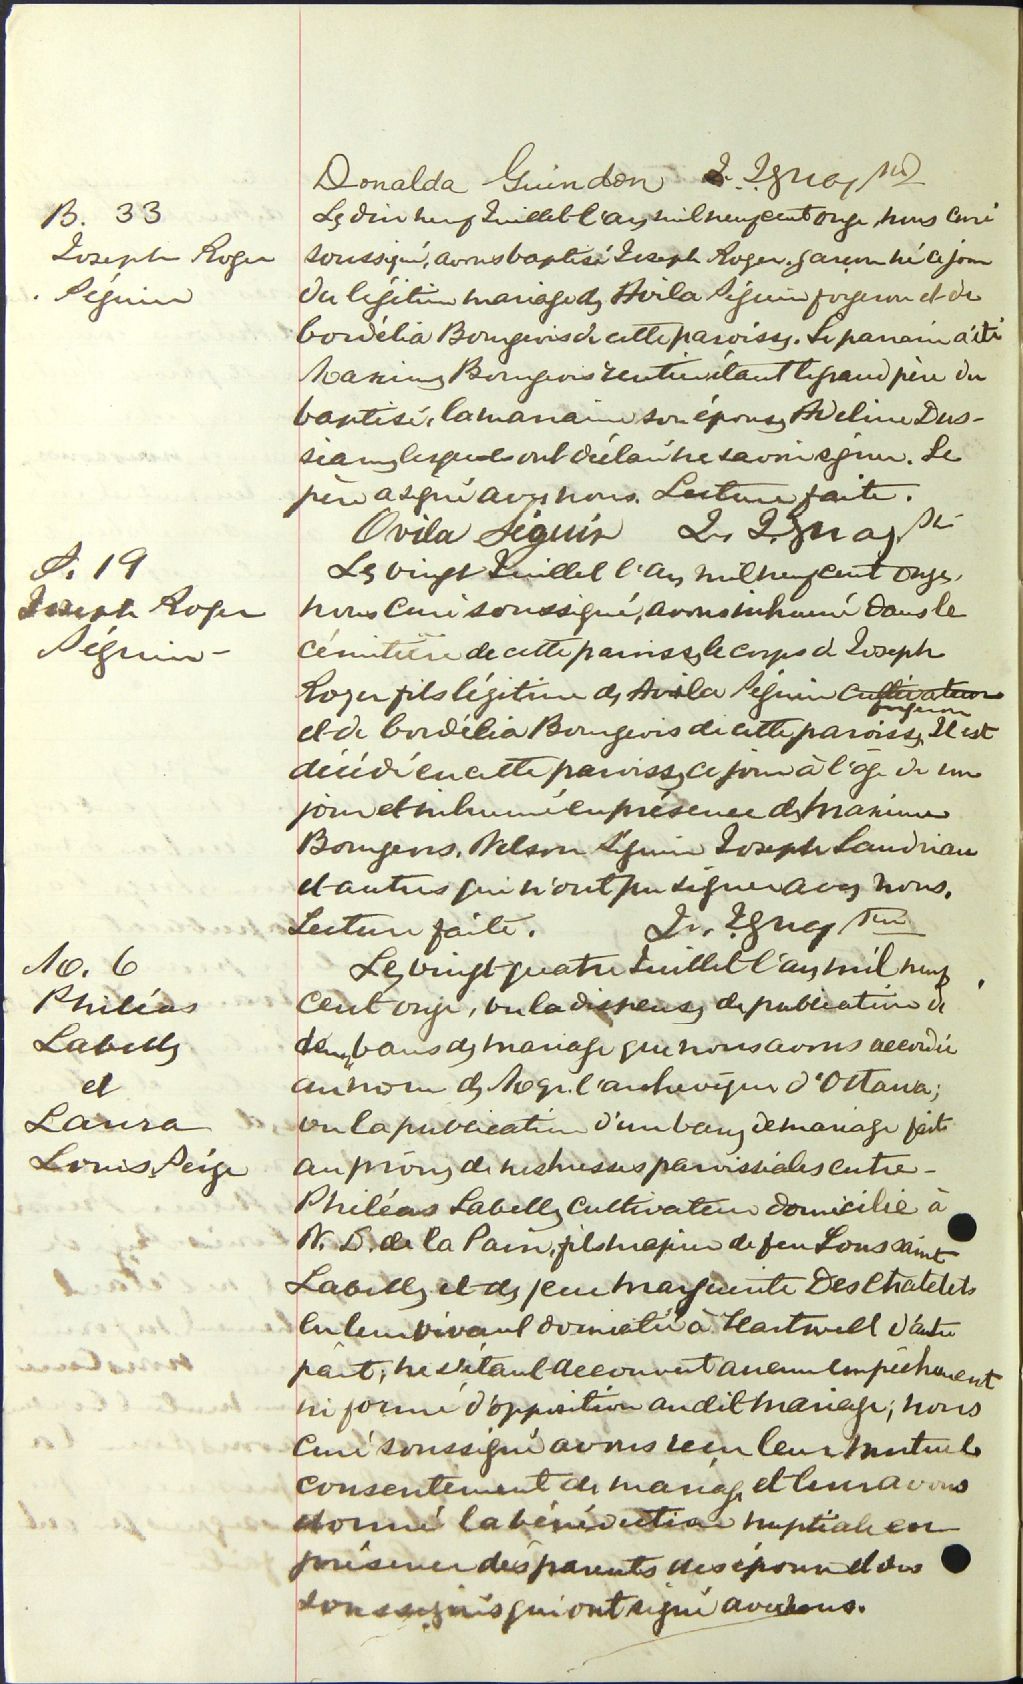 Donalda Guindon
B. 33
Joseph Roger
Séguin
Le dix neuf Juillet l'an mil neuf cent onze, nous curé
soussigné, avons baptisé Joseph Roger, garçon né ce jour
du légitime mariage de Avila Séguin forgeron et de
Cordélia Bourgeois de cette paroisse. Le parrain a été
Maxime Bourgeois rentier étant le grand père du
baptisé, la marraine son épouse Adeline Dus-
lesquels ont déclaré ne savoir signer. Le
père a signé avec nous. Lecture faite.
Ovila Séguin
S. 19
Joseph Roger
Séguin -
Le vingt Juillet l'an mil neuf cent onze,
nous curé soussigné, avons inhumé dans le
cémitière de cette paroisse, le corps de Joseph
Roger fils légitime de Avila Séguin cultivateur
forgeron
et de Cordélia Bourgeois de cette paroisse, Il est
décédé en cette paroisse, ce jour à l'âge de un
jour et inhumé en présence de Maxime
Bourgeois, Nelson Séguin Joseph Landriau
et autres qui n'ont pu signer avec nous.
Lecture faite.
M. 6
Philéas
Labelle
et
Laura
Louis Seize
Le vingt-quatre Juillet l'an mil neuf
cent onze, vu la dispense de publication de
deux bans de mariage que nous avons accordée
au nom de Mgr. l'archevêque d'Ottawa;
vu la publication d'un ban de mariage faite
au prône de nos messes paroissiales entre -
Philéas Labelle, cultivateur domicilié à
N. D. de la Paix, fils majeur de feu Toussaint
Labelle, et de feue Marguerite DesChatelets
en leur vivant domicilié à Hartwell d'autre
part; ne s'étant découvert aucun empêchement
ni formé d'opposition au dit mariage; nous
curé soussigné avons reçu leur mutuel
consentement de mariage et leur avons
donné la bénédiction nuptiale en
présence des parents des époux et des
soussignés qui ont signé avec nous.